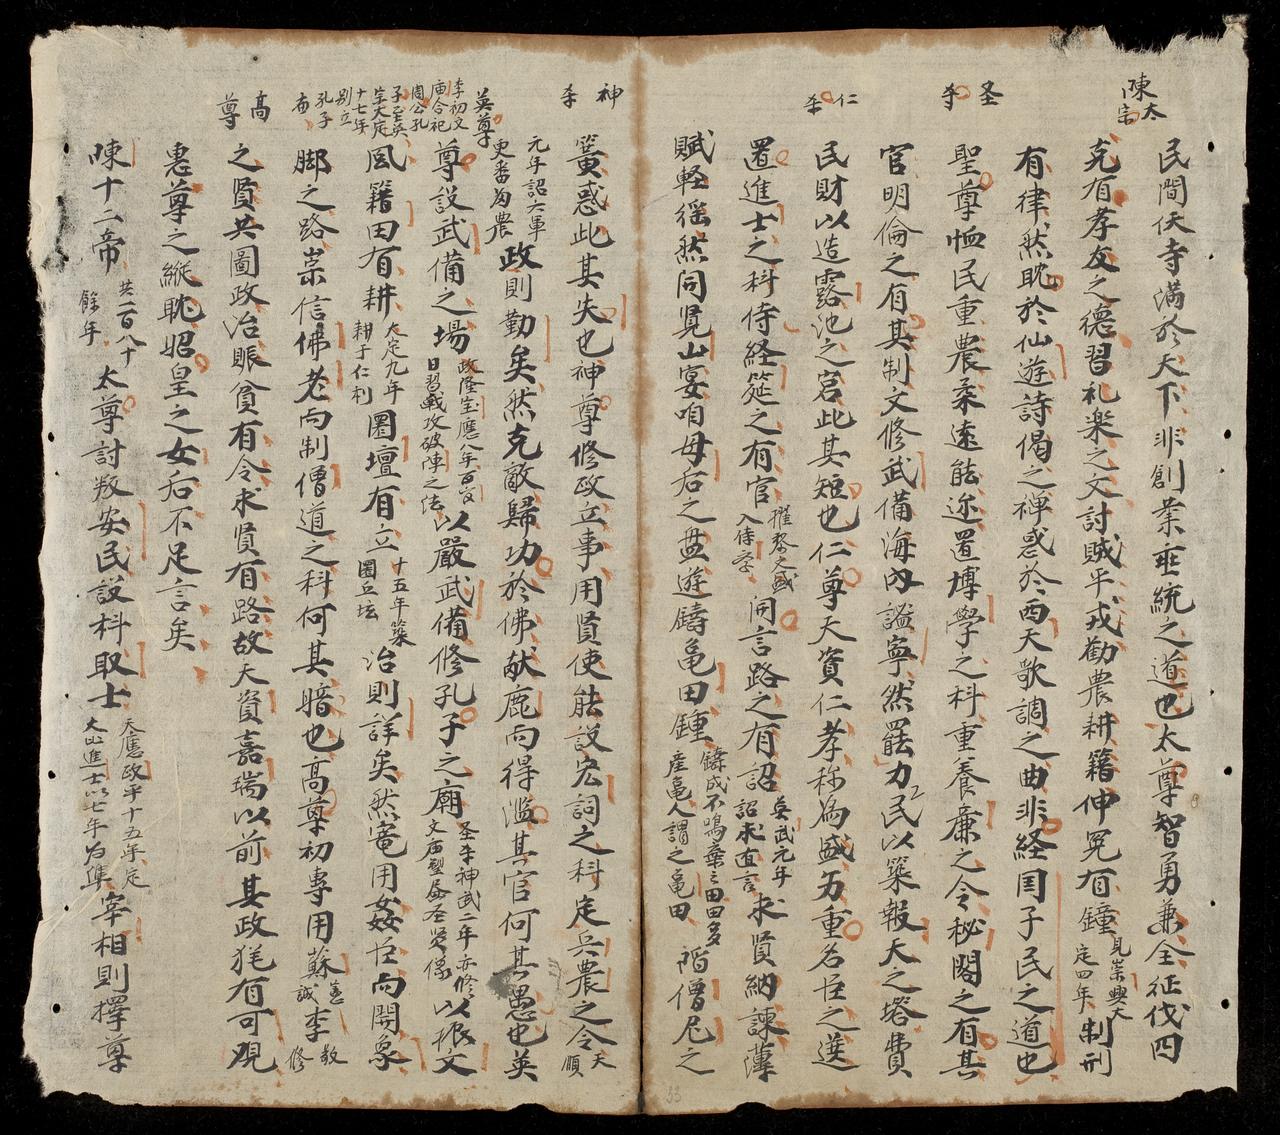 民間伏寺滿於天下非創業垂統之道也太尊智勇兼全征伐四
克有孝友之德習礼楽之文討賊平戎勧農耕籍伸冤有鐘見崇興大定四年制刑
有律然耽於仙遊詩偈之禅惑於西天歌調之曲非経国子民之道也
聖尊恤民重農柔遠能迩置博学之科重養廉之令秘閣之有其
官明倫之有其制文修武備海内謐寧然罷力民以築報天之塔費
民財以造露池之宮此其短也仁尊天資仁孝称為盛历重名臣之選
置進士之科侍経筵之有官擢黎文盛入侍学開言路之有詔英武元年詔求直言求賢納諫薄
賦軽徭然同覓山宴咱母后之盘遊鑄亀田鍾鑄成不鳴棄之田田多産亀人謂之亀田階僧尼之
簧惑此其失也神尊修政立事用賢使能設宏詞之科定兵農之令天順
元年詔六軍更番為農政則勤矣然克敵歸功於佛献鹿而得濫其官何其愚也英
尊設武備之場政隆宝應八年日習戰攻破陣之法以嚴武備修孔子之廟文庙塑以振文
風籍田有耕大定九年耕于仁利圜壇有立十五年築圜丘坛治則詳矣然竜用姦臣而開象
脚之路崇信佛老而制僧道之科何其暗也高尊初専用蘇憲誠李敬修
之賢共圖政治賑貧有令求賢有路故天資嘉瑞以前其政犹有可观
惠尊之縱耽昭皇之女后不足言矣
陳十二帝共一百八十餘年太尊討叛安民説科取士天應政平十五年定大比進士以七年為準宰相則擇尊
陳太宗
圣李
仁李
神李
英尊
李初文庙合祀周公孔子至英宗大定十七年别立孔子庙
高尊